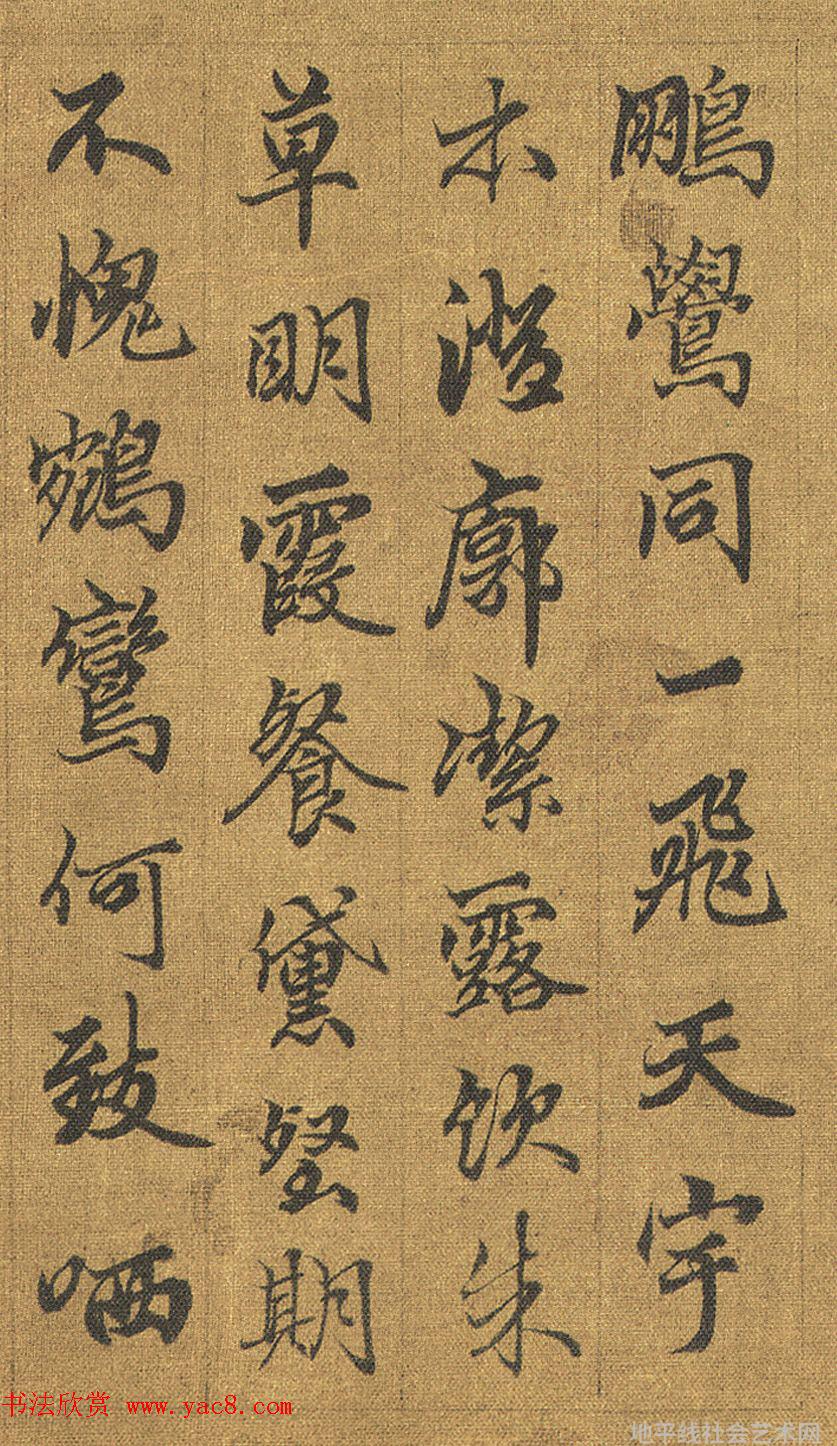 鵬鷽同一飛天宇
本澄廓潔露飲朱
草明霞餐黛壑期
不愧鶴鸞何致哂
书法欣赏 www.yac8.com
地平线社会艺术网